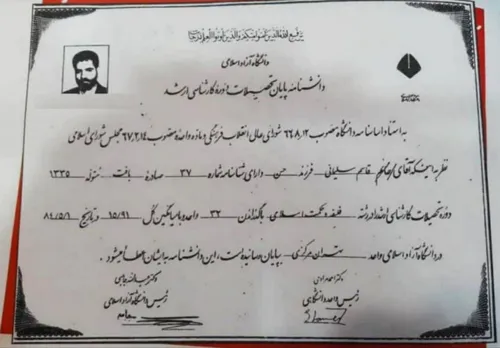 یرفع الله الذین آمنوا منکم والذین اوتوا العلم درجات
دانشگاه آزاد اسلامی
دانشنامه پایان تحصیلات دوره کارشناسی ارشد
به استناد اساسنامه دانشگاه مصوب ۶۶،۸،۱۲ شورای عالی انقلاب فرهنگی و ماده واحده مصوب ۶۷،۲،۱۴ مجلس شورای اسلامی
نظر به اینکه آقای قاسم سلیمانی فرزند حسن دارای شناسنامه شماره ۳۷ صادره بافت متولد ۱۳۳۵
دوره تحصیلات کارشناسی ارشد در رشته فلسفه و حکمت اسلامی با گذراندن ۳۲ واحد با میانگین کل ۱۵/۹۱ در تاریخ ۸۴/۵/۱
در دانشگاه آزاد اسلامی واحد تهران مرکزی بپایان رسانیده است، این دانشنامه به ایشان اعطا میشود.
دکتر
رئیس واحد دانشگاهی
دکتر عبدالله جاسبی
رئیس دانشگاه آزاد اسلامی